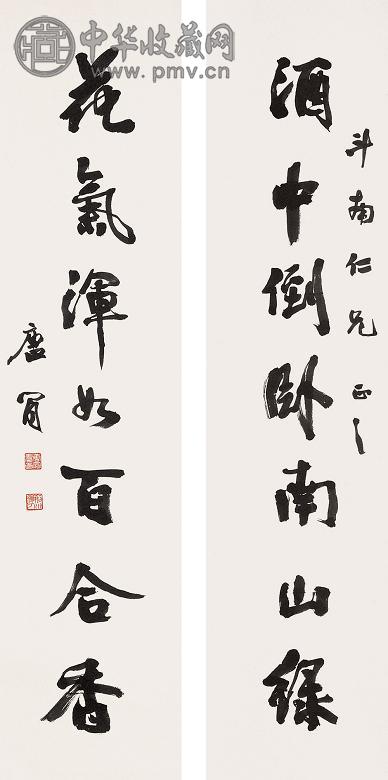 中华收藏网
www.pmv.cn
斗南仁兄 正之
酒中倒臥南山緑
花氣渾如百合香